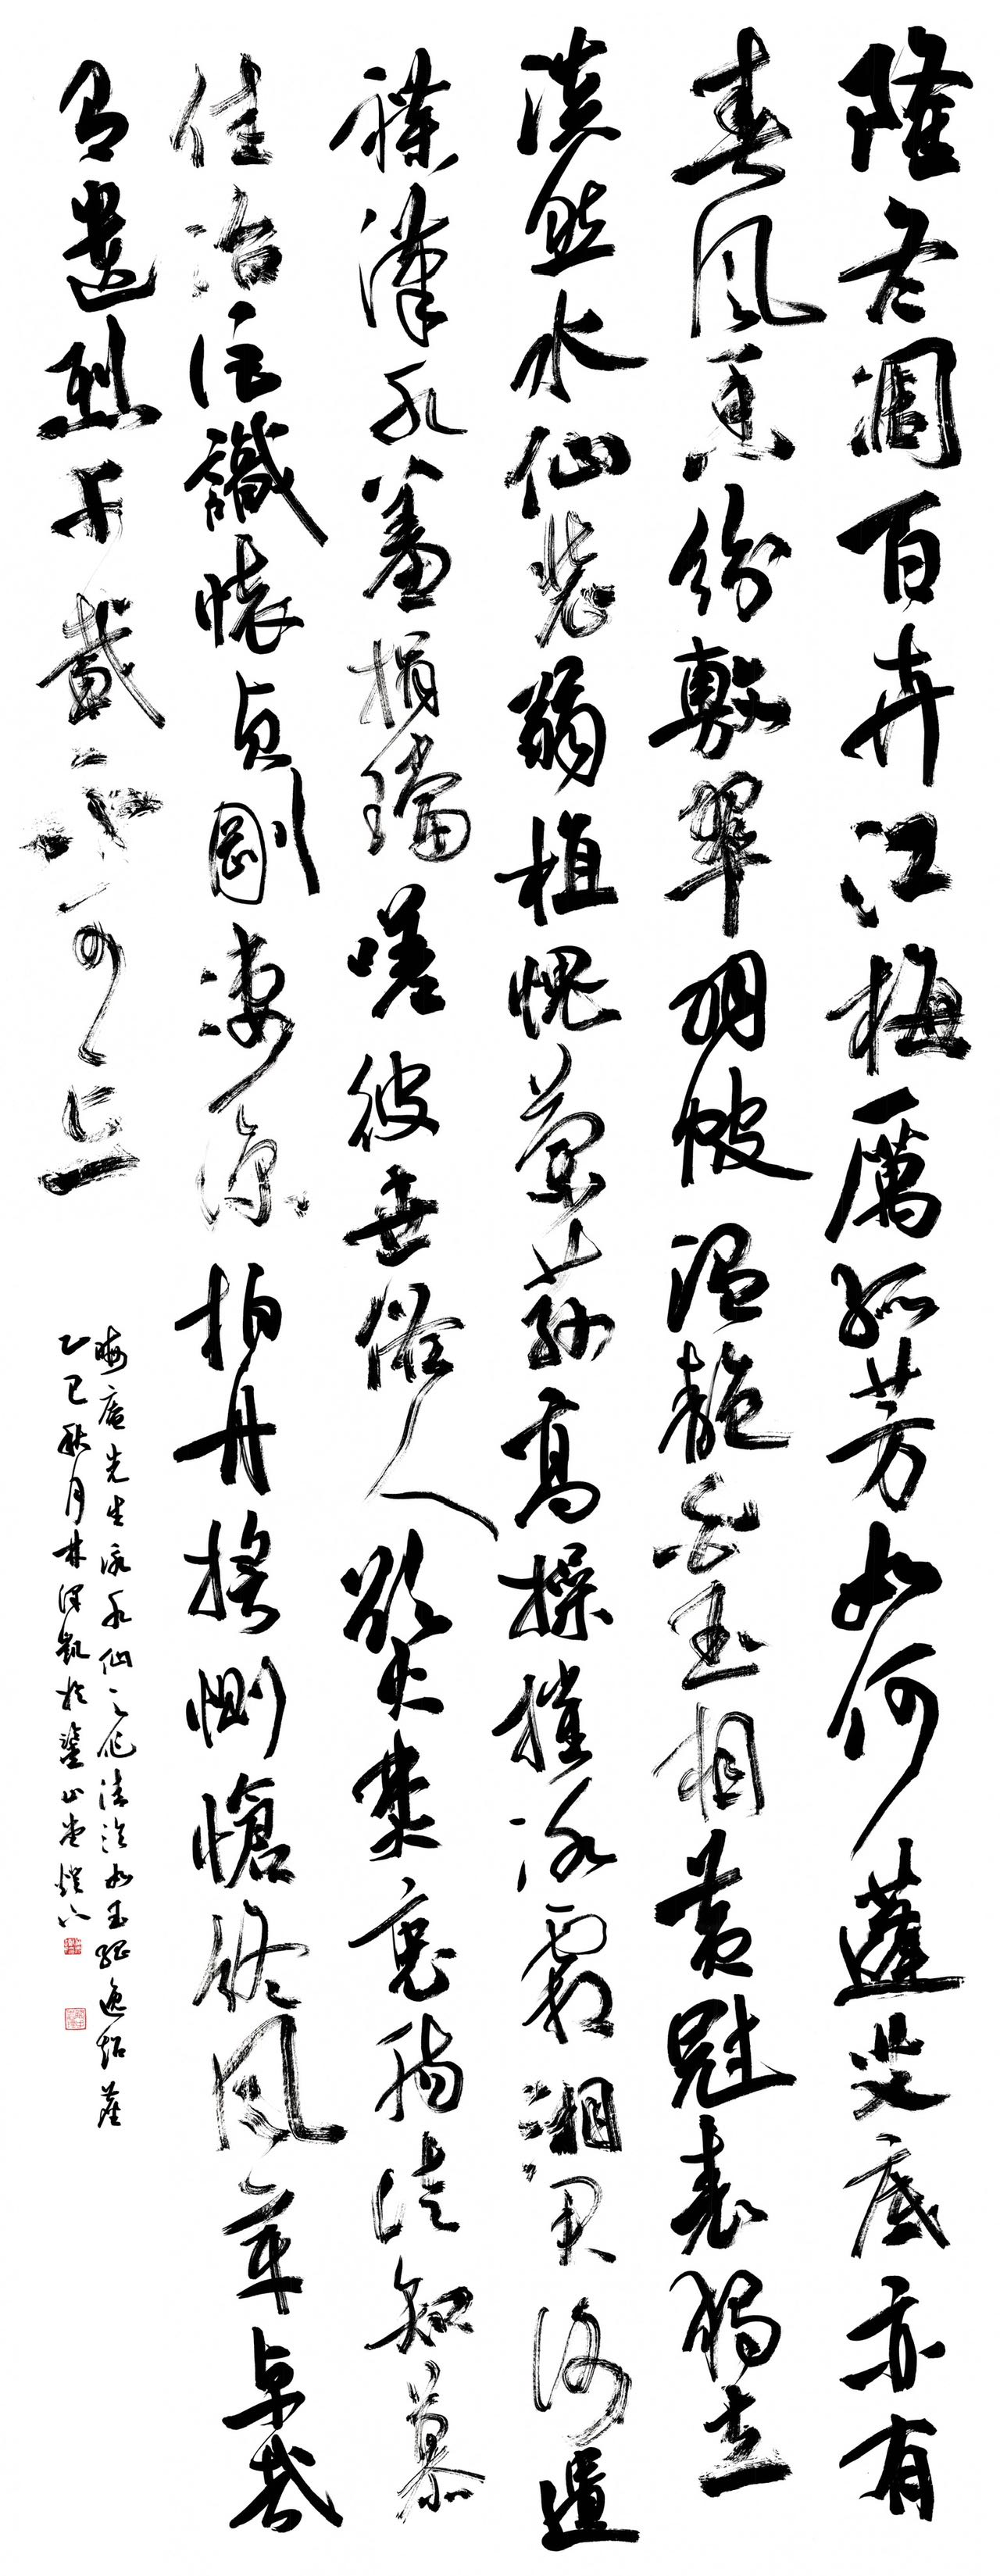 隆冬凋百卉江梅厲孤芳如何蓬艾底亦有
春風香紛敷翠羽帔溫靘白玉相黃冠表獨立
淡然水仙裝弱植愧蘭蓀高操摧冰霜湘君謝遺
褋漢水羞捐璫嗟彼世俗人欲火焚衷腸徒知慕
佳冶詎識懷貞剛淒涼柏舟誓惻愴終風章卓哉
有遺烈千載不可忘
晦庵先生詠水仙之作清泠如玉逸超塵
乙巳秋月林澤凱於鑒止堂燈下